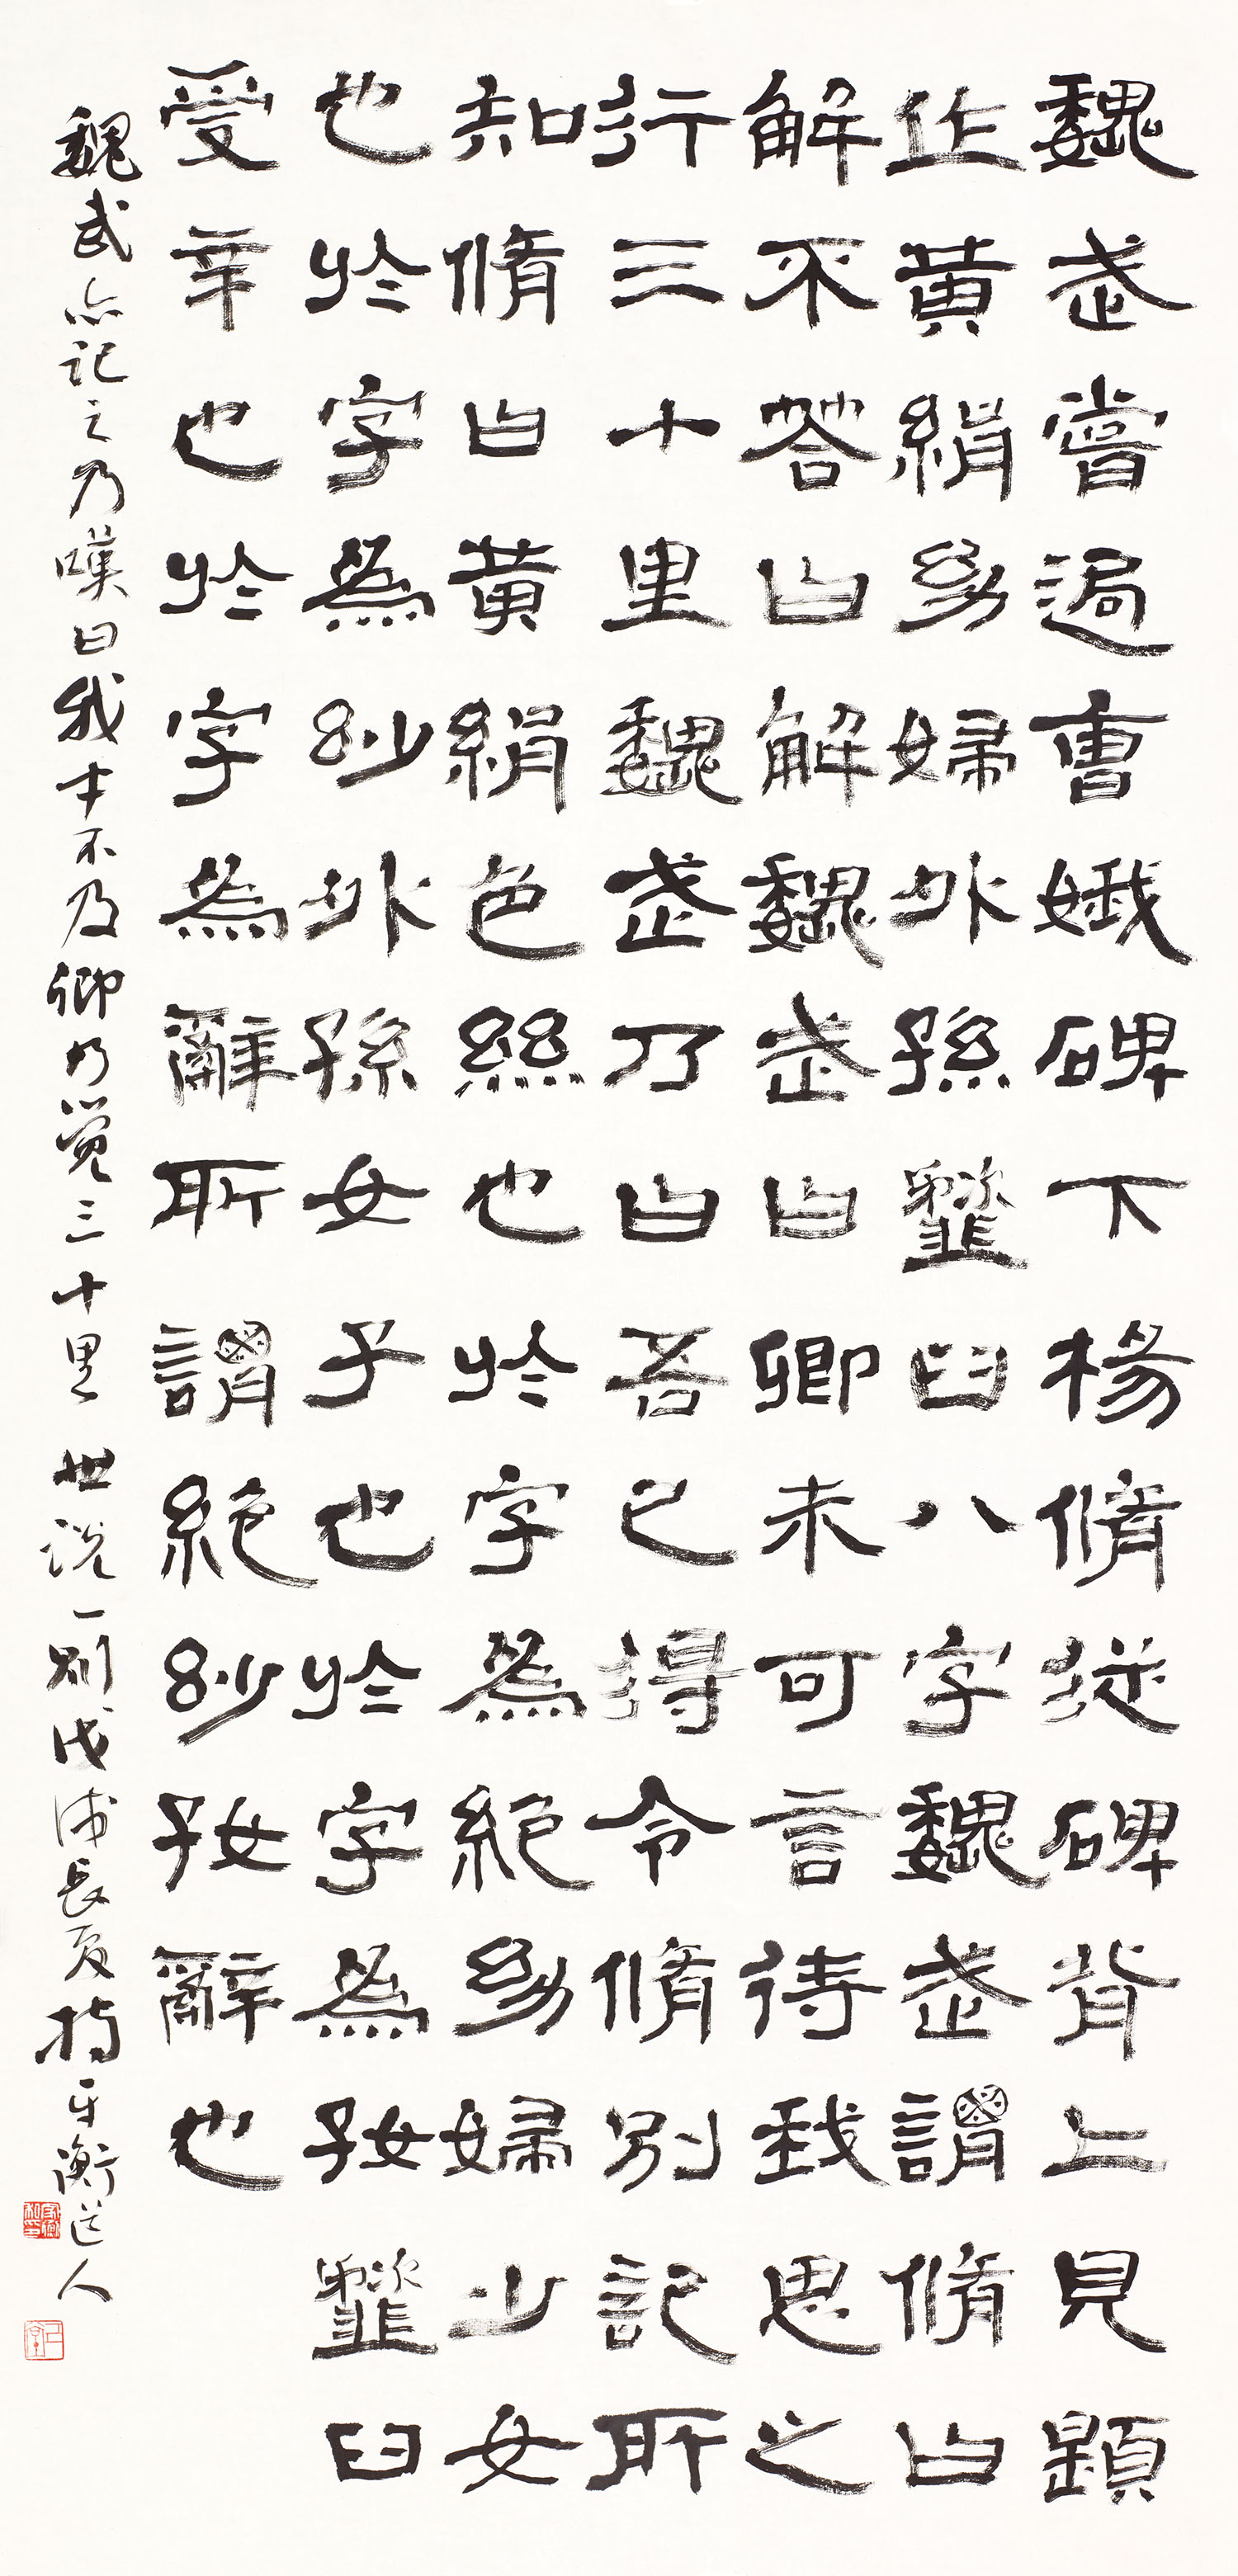 魏武嘗過曹娥碑下楊脩從碑背上見題
作黃絹幼婦外孫虀臼八字魏武謂脩曰
解不答曰解魏武曰卿未可言待我思之
行三十里魏武乃曰吾已得令脩別記所
知脩曰黃絹色絲也於字為絕幼婦少女
也於字為妙外孫女子也於字為好虀臼
受辛也於字為辭所謂絕妙好辭也
魏武亦記之乃嘆曰我才不及卿乃覺三十里 世說一則 戊戌長夏 持平衡道人